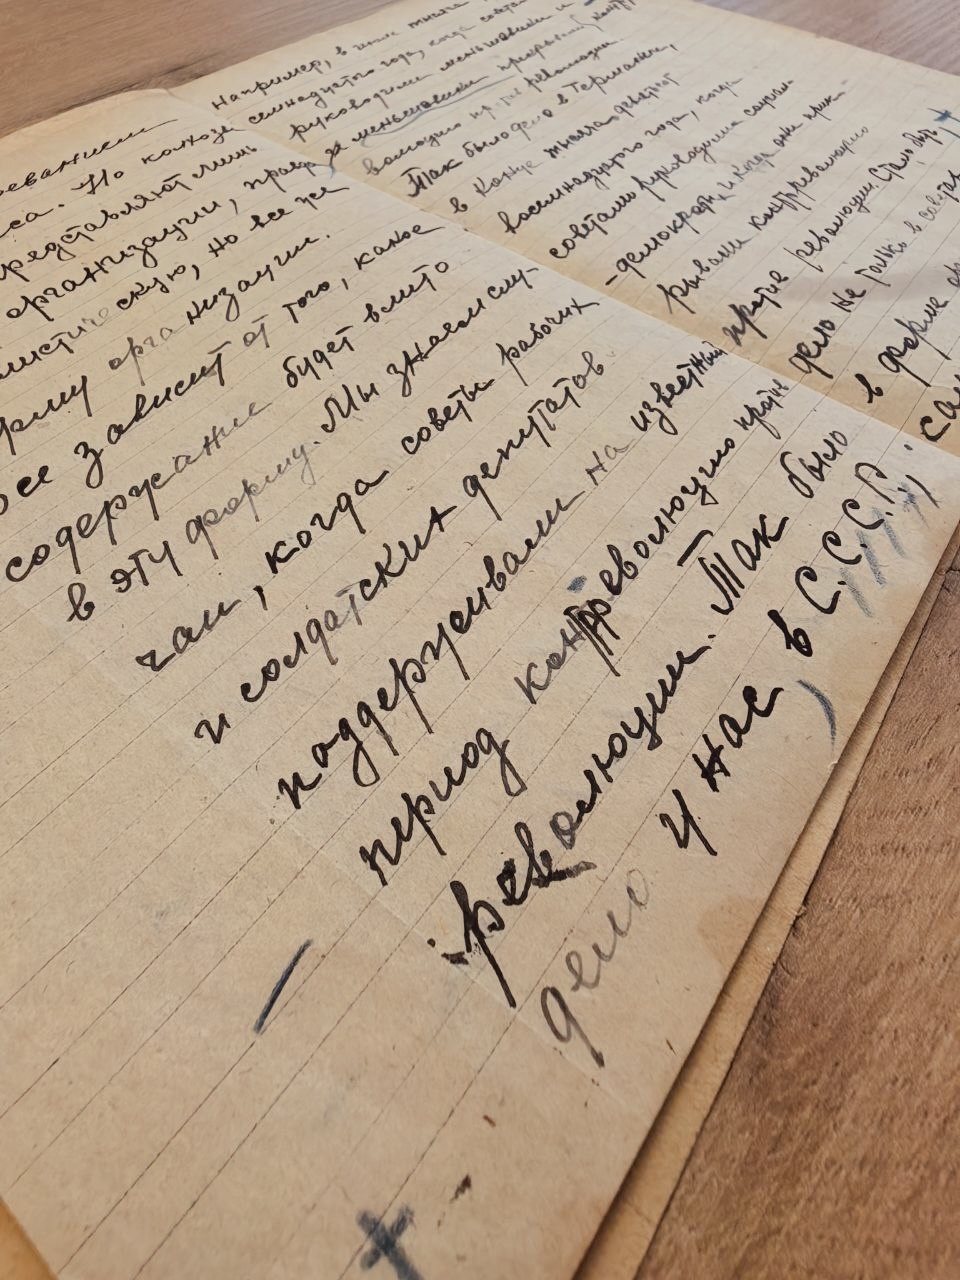 оеванием
са. Но колхозы
представляют лишь
организации, правда
листическую, но все же
форму организации.
Все зависит от того, какое
содержание будет влито
в эту форму. Мы знаем слу-
чаи, когда советы рабочих
и солдатских депутатов
поддерживали на известный
период контрреволюцию против
революции. Так было
дело у нас в С.С.С.Р.,
Например, в июле
семнадцатого года, когда советами
руководили меньшевики и
меньшевики прикрывали контрре
волюцию против революции.
Так было дело в Германии,
в конце тысяча девятсот
восемнадцатого года, когда
советами руководили социал-
-демократы, и когда они прик-
рывали контрреволюцию
против революции. Стало быть,
дело не только в советах
в форме
сам